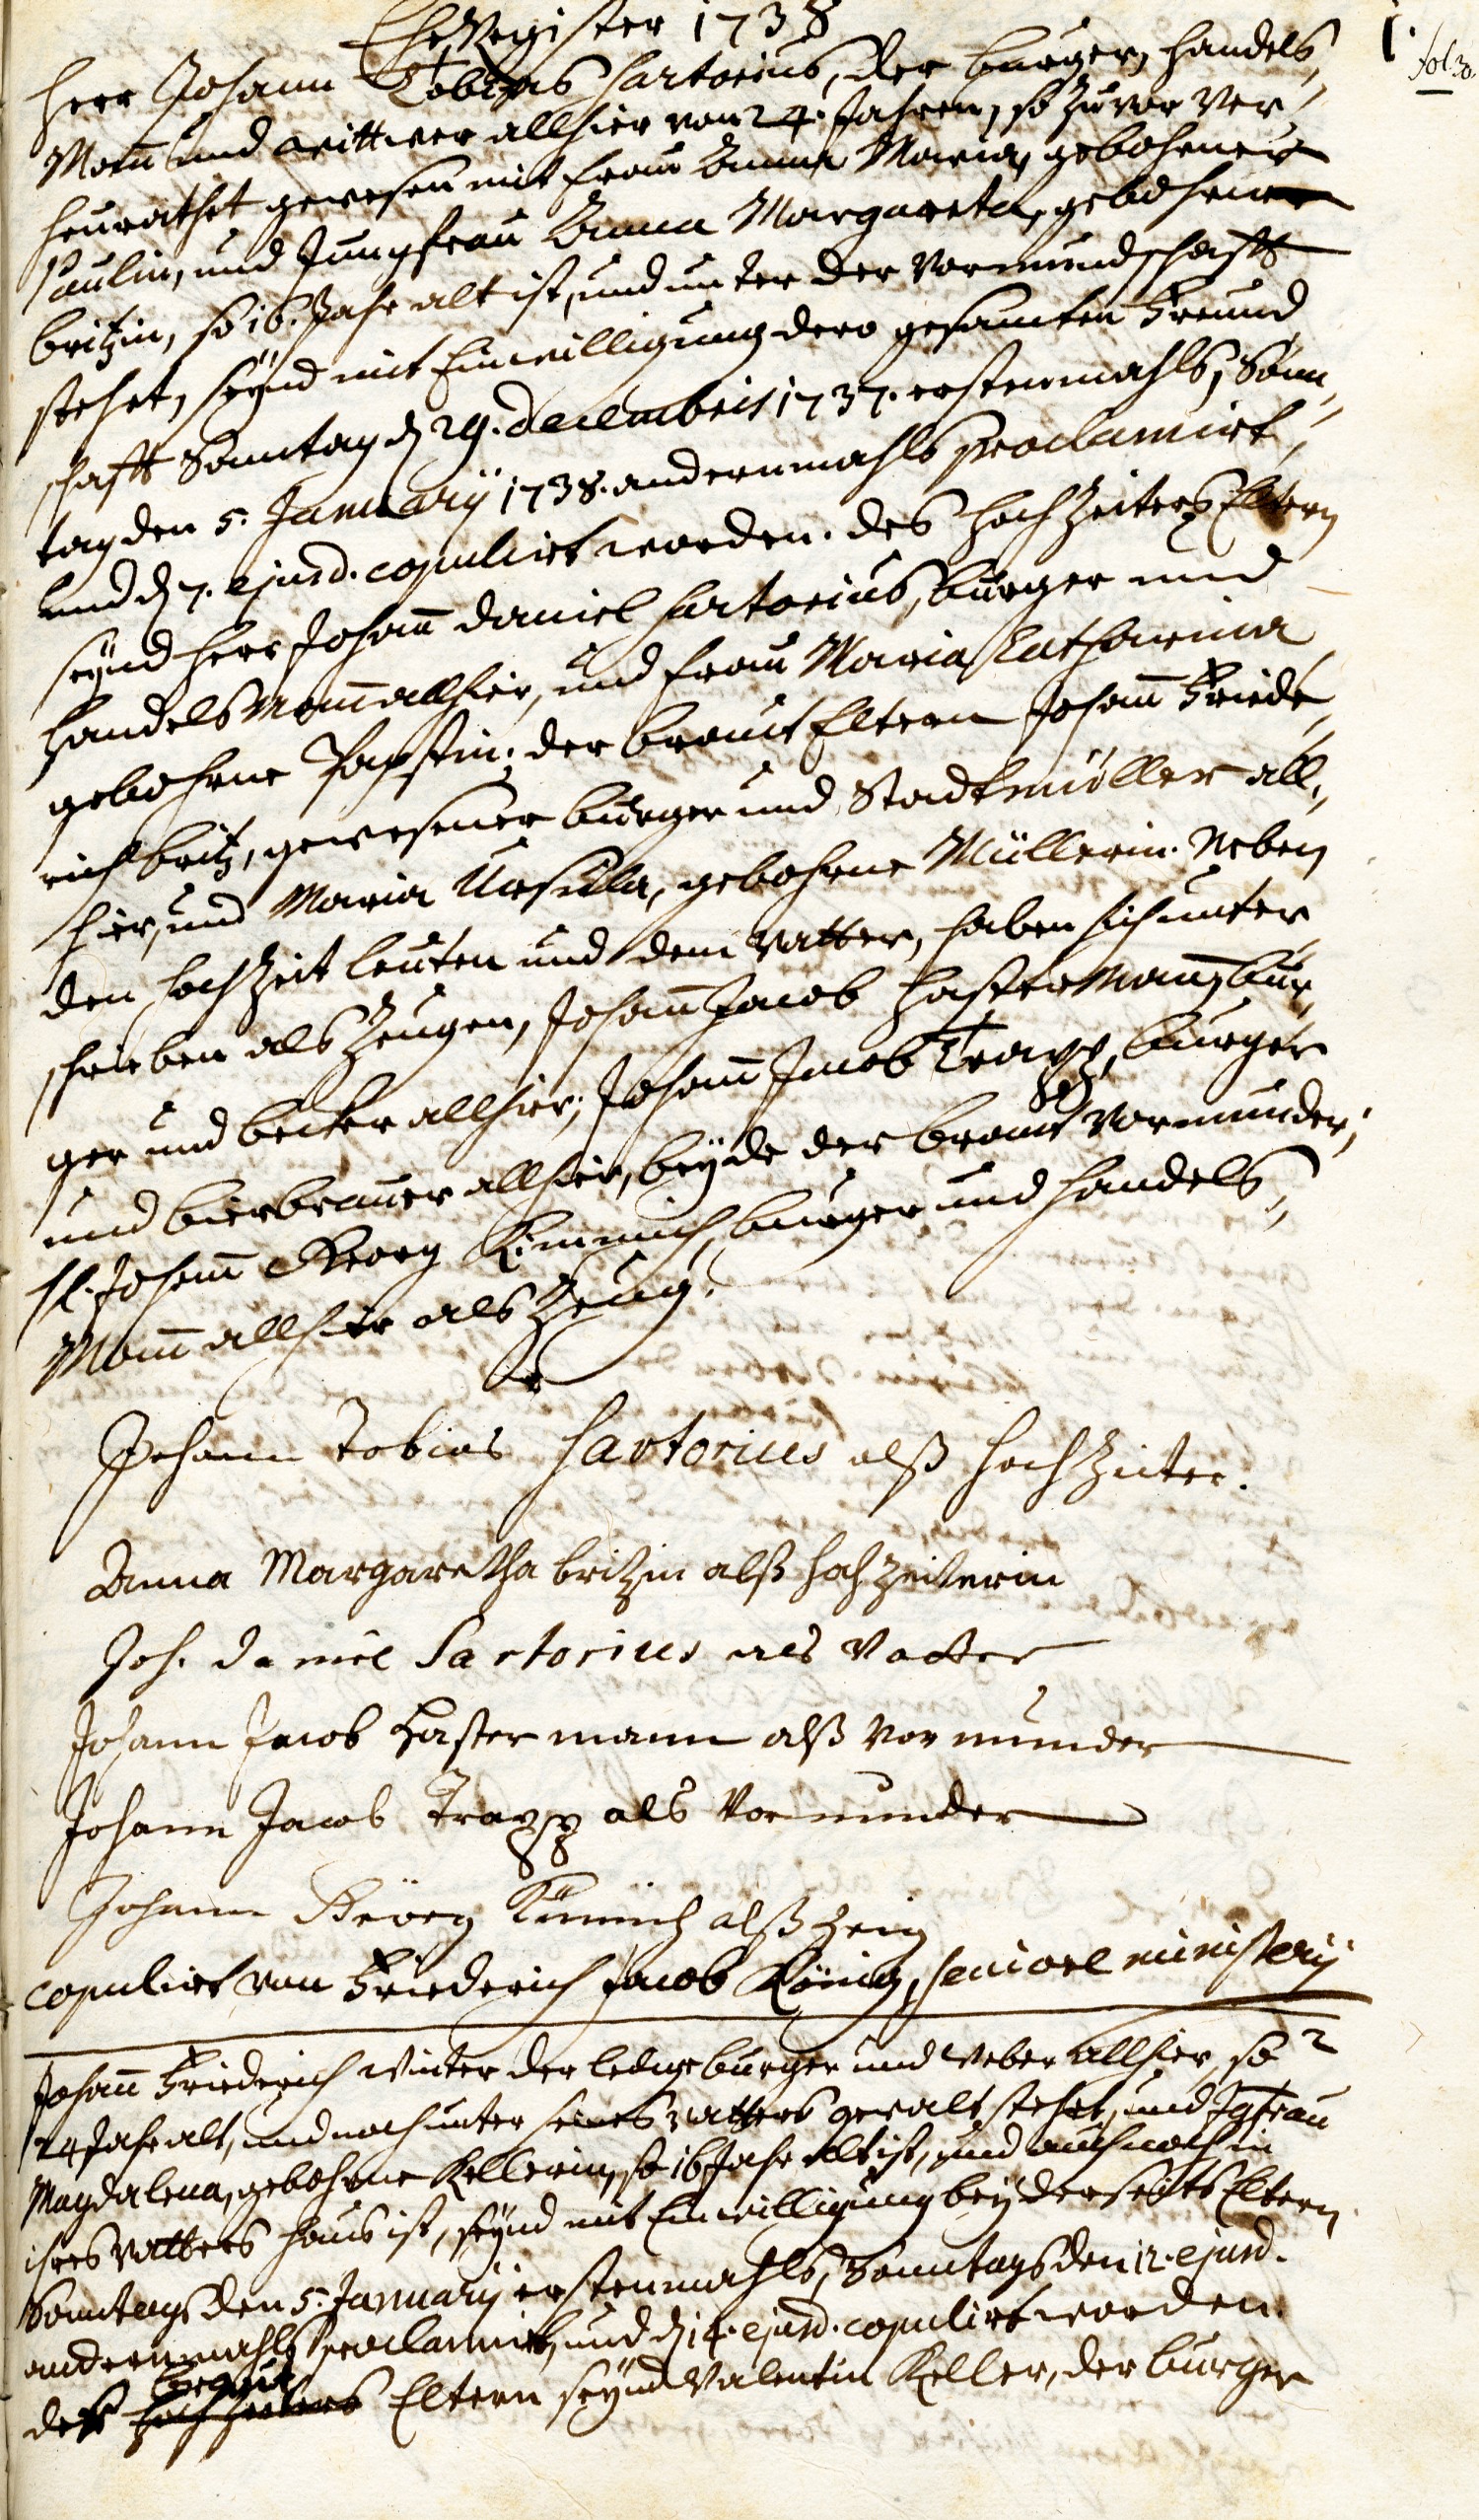 Ehe Register 1738
1.
fol. 30.
Herr Johann Tobias Sartorius, der burger, Handels-
Mann und wittwer allhier von 24. Jahren, so zuvor ver-
heurathet gewesen mit Frau Anna Maria, gebohrner
Paulin, und Jungfrau Anna Margareta, gebohrne
britzin, so 16. Jahr alt ist, und unter der Vormundschafft
stehet, seynd mit Einwilligung dero gesamten Freund
schafft Sonntag d. 29. Decembris 1737. erstenmahls, Sonn-
tag den 5. Januarij 1738. andernmahls proclamirt,
und d. 7. ejusd. copulirt worden. des Hochzeiters Eltern
seynd Herr Johann Daniel Sartorius, burger und
HandelsMann allhier, und Frau Maria Catharina
gebohrne Papstin; der braut Eltern Johann Friede-
rich britz, gewesener burger und Stadtmüller all-
hier, und Maria Ursula, gebohrne Müllerin. Neben
den Hochzeit leuten und dem Vatter, haben sich unter
schrieben als Zeugen, Johann Jacob Hastermann, bur-
ger und becker allhier, Johann Jacob Trapp, burger
und bierbrauer allhier, beyde der braut Vormünder;
H. Johann Georg Kimmich, burger und Handels-
Mann allhier als Zeug.
Johann Tobias Sartorius alß Hochzeiter.
Anna Margaretha britzin alß Hochzeiterin
Joh. Daniel Sartorius als Vatter
Johann Jacob Hastermann alß Vormunder
Johann Jacob Trapp als Vormunder
Johann Geörg Kimmich alß Zeig
copulirt von Friederich Jacob König, seniore ministerij
2
Johann Friederich Winter der ledige burger und Weber allhier, so
24 Jahr alt, und noch unter seines Vatters gewalt stehet, und Jgfrau
Magdalena, gebohrne Kellerin, so 16 Jahr alt ist, und auch noch in
ihres Vatters Haus ist, seynd mit Einwilligung beyderseits Eltern
Sonntags den 5. Januarij erstenmahls, Sonntags den 12. ejusd.
andernmahls proclamirt, und d. 14. ejusd. copulirt worden.
braut
des Hochzeiters Eltern seynd Valentin Keller, der burger